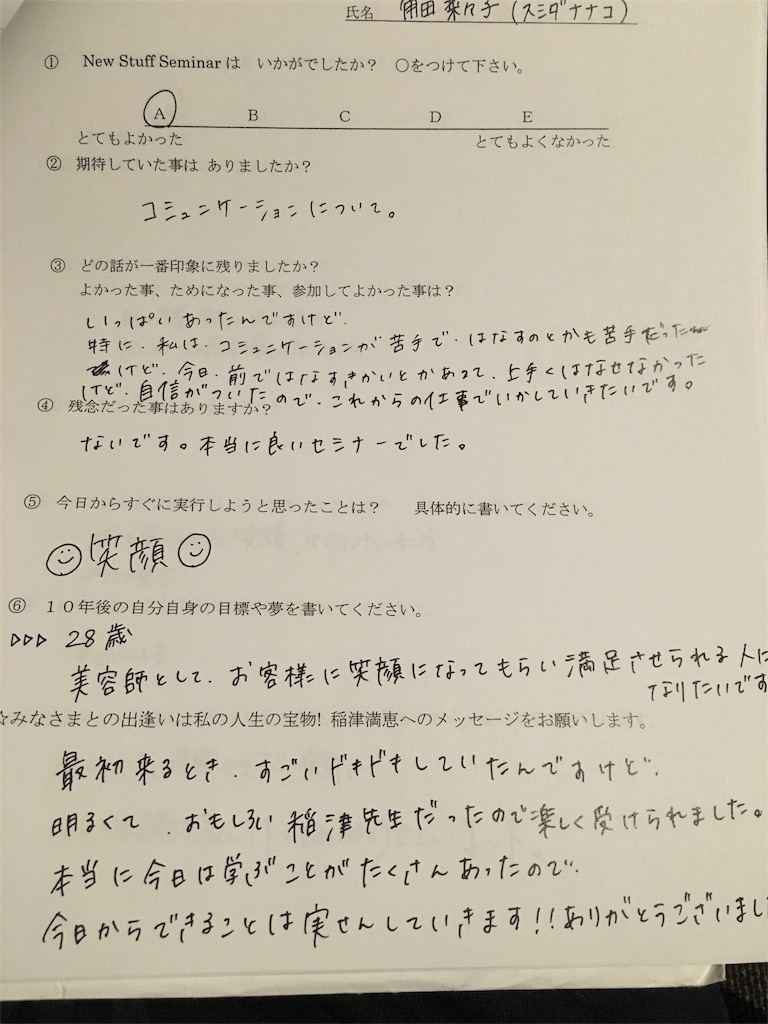 氏名 角田菜々子(スミダナナコ)
① New Stuff Seminarは いかがでしたか? ○をつけて下さい。
A B C D E
とてもよかった とてもよくなかった
② 期待していた事は ありましたか?
コミュニケーションについて。
③ どの話が一番印象に残りましたか?
よかった事、ためになった事、参加してよかった事は?
いっぱいあったんですけど、
特に、私は、コミュニケーションが苦手で、はなすのとかも苦手だった
けど、今日、前ではなすきかいとかあって、上手くはなせなかった
けど、自信がついたので、これからの仕事でいかしていきたいです。
④ 残念だった事はありますか?
ないです。本当に良いセミナーでした。
⑤ 今日からすぐに実行しようと思ったことは? 具体的に書いてください。
笑顔
⑥ 10年後の自分自身の目標や夢を書いてください。
▷▷▷ 28歳
美容師として、お客様に笑顔になってもらい満足させられる人に
なりたいです
☆みなさまとの出逢いは私の人生の宝物! 稲津満恵へのメッセージをお願いします。
最初来るとき、すごいドキドキしていたんですけど、
明るくて、おもしろい稲津先生だったので楽しく受けられました。
本当に今日は学ぶことがたくさんあったので、
今日からできることは実せんしていきます!!ありがとうございまし